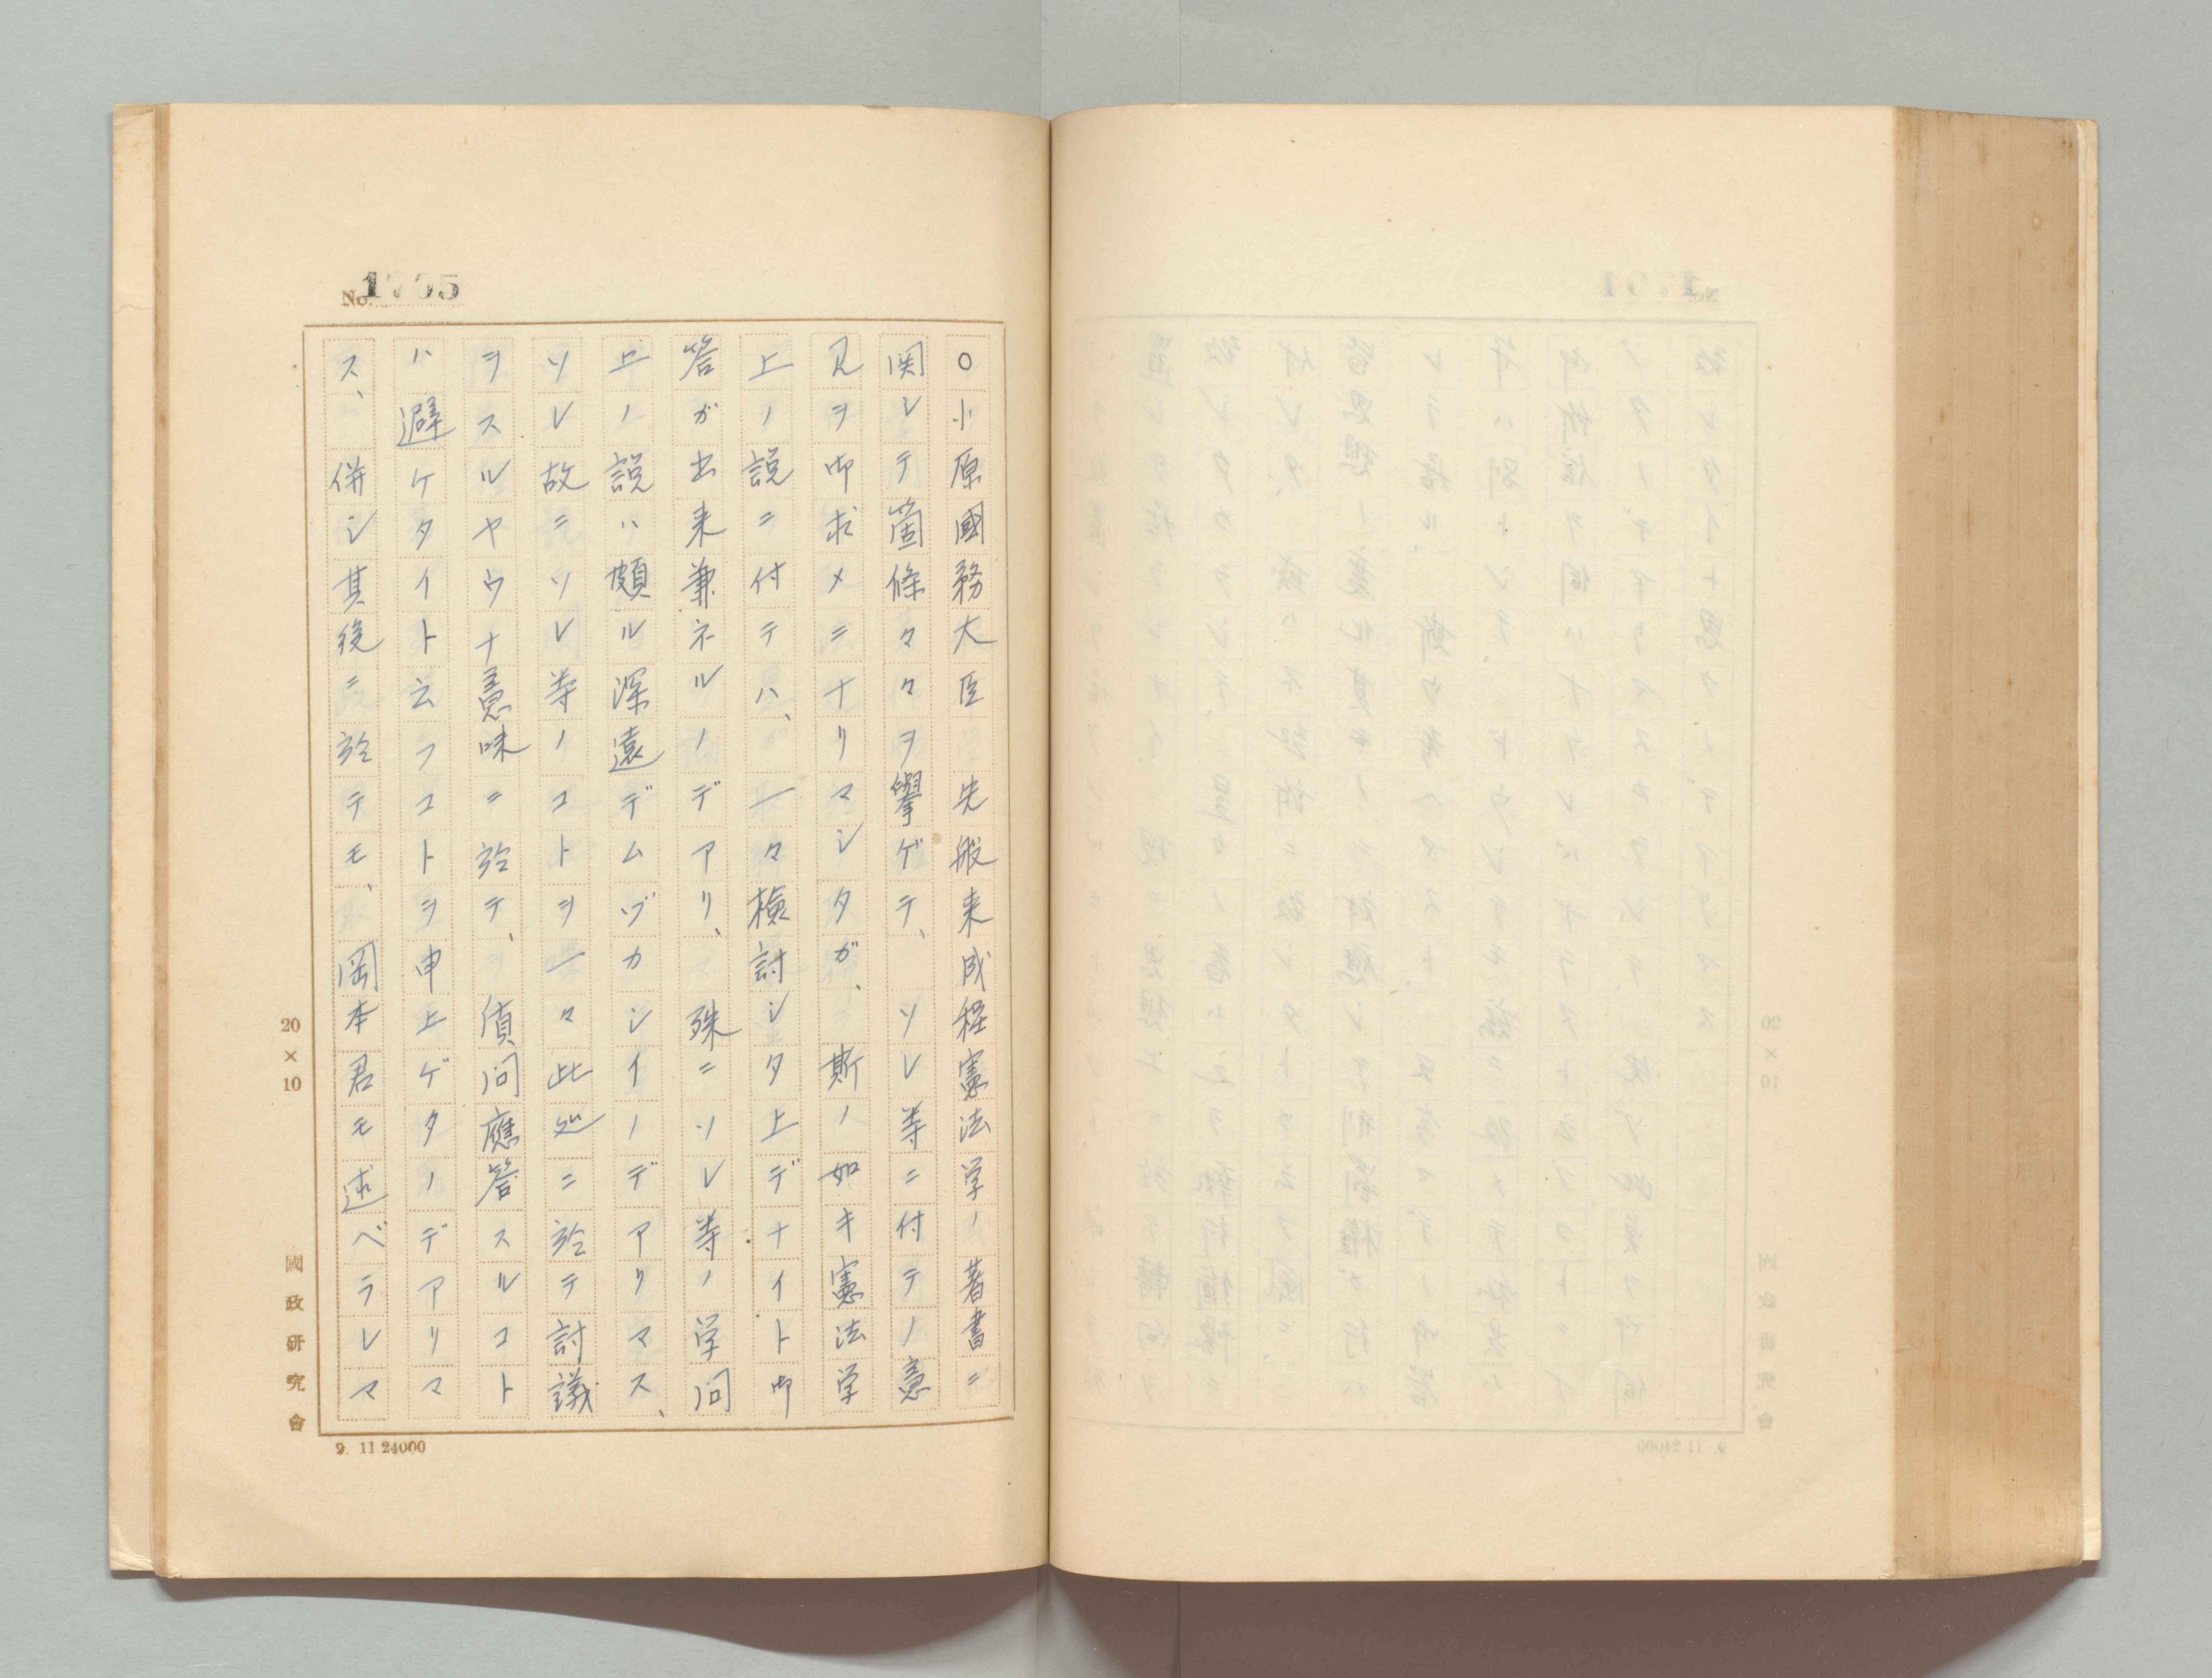 No. 1705
○小原國務大臣　先般来成程憲法学ノ著書ニ
関シテ箇條々々ヲ擧ゲテ、ソレ等ニ付テノ意
見ヲ御求メニナリマシタガ、斯ノ如キ憲法学
上ノ説ニ付テハ、一々檢討シタ上デナイト御
答ガ出来兼ネルノデアリ、殊ニソレ等ノ学問
上ノ説ハ頗ル深遠デムヅカシイノデアリマス、
ソレ故ニソレ等ノコトヲ一々此処ニ於テ討議
ヲスルヤウナ意味ニ於テ、質問應答スルコト
ハ避ケタイト云フコトヲ申上ゲタノデアリマ
ス、併シ其後ニ於テモ、岡本君モ述ベラレマ
20×10
國政研究會
9. 11.24000